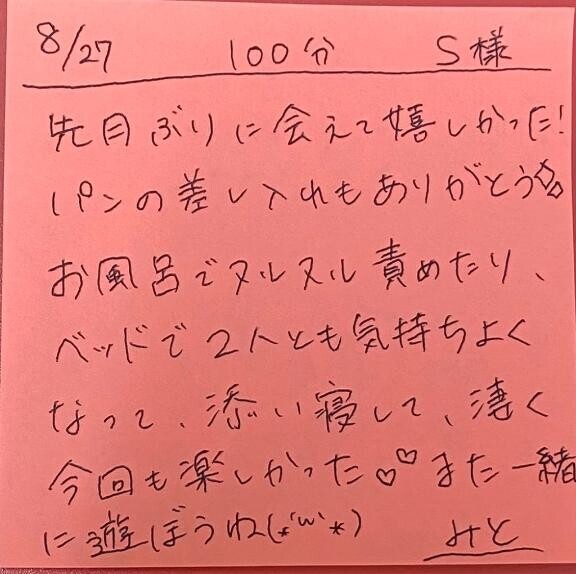 8/27 100分 S様
先月ぶりに会えて嬉しかった!
パンの差し入れもありがとう
お風呂でヌルヌル責めたり、
ベッドで2人とも気持ちよく
なって、添い寝して、凄く
今回も楽しかった♡♡また一緒
に遊ぼうね(*'ω'*)
みと